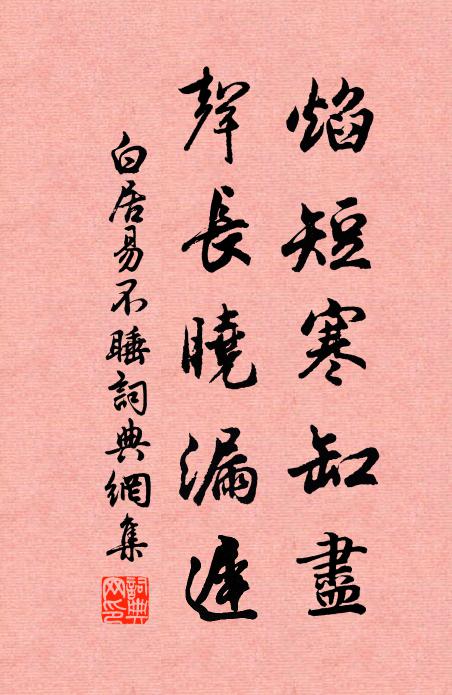 焰短寒缸盡
聲長曉漏遲
白居易不睡詞典網集
詞典網印